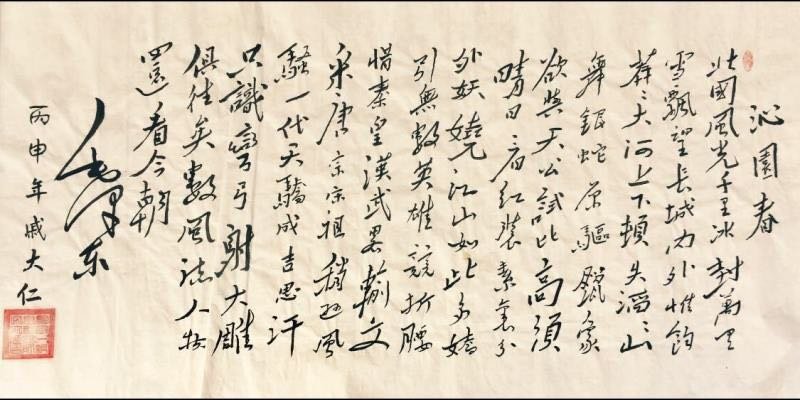 沁園春
北國風光千里冰封萬里
雪飄望長城内外惟餘
莽〻大河上下頓失滔〻山
舞銀蛇原驅臘象
欲與天公試比高須
晴日看紅裝素裹分
外妖嬈江山如此多嬌
引無數英雄競折腰
惜秦皇漢武畧輸文
采唐宗宋祖稍遜風
騷一代天驕成吉思汗
只識彎弓射大雕
俱往矣數風流人物
還看今朝
毛澤东
丙申年戚大仁